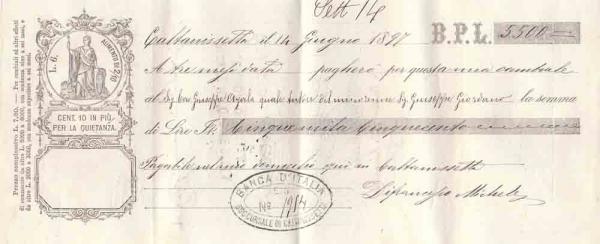 Sett 14
Caltanissetta il 14 Giugno 1897 B.P.L. 5500
A tre mesi data pagherò per questa mia cambiale
al Sig. Cav. Giuseppe Ayala quale tutore del minorenne Sig. Giuseppe Giordano la somma
di Lire It. Cinquemila Cinquecento
Pagabile nel mio domicilio qui in Caltanissetta
Difrancesco Michele
L. 6.
AUMENTO DI 2/10
CENT. 10 IN PIÙ
PER LA QUIETANZA.
BANCA D'ITALIA
No. 1914
SUCCURSALE DI CALTANISSETTA
Prezzo complessivo L. 7,20. — Per cambiali ed altri effetti
di commercio da oltre L. 5000 a 6000, con scadenza sino a sei mesi,
da oltre L. 2000 a 3000, con scadenza superiore a sei mesi.